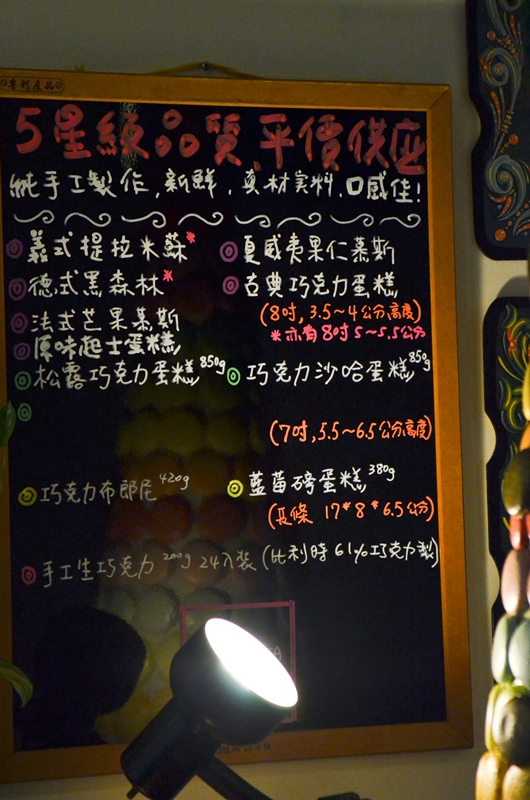 專利產品
5星級品質,平價供应
純手工製作,新鮮,真材実料,口感佳!
義式提拉米蘇* 夏威夷果仁慕斯
德式黑森林* 古典巧克力蛋糕
法式芒果慕斯 (8吋, 3.5~4公分高度)
原味起士蛋糕 *亦有8吋5~5.5公分
松露巧克力蛋糕850g 巧克力沙哈蛋糕850g
(7吋, 5.5~6.5公分高度)
巧克力布郎尼420g 藍莓磅蛋糕380g
(長條 17*8*6.5公分)
手工生巧克力200g 24入裝(比利時61%巧克力製)